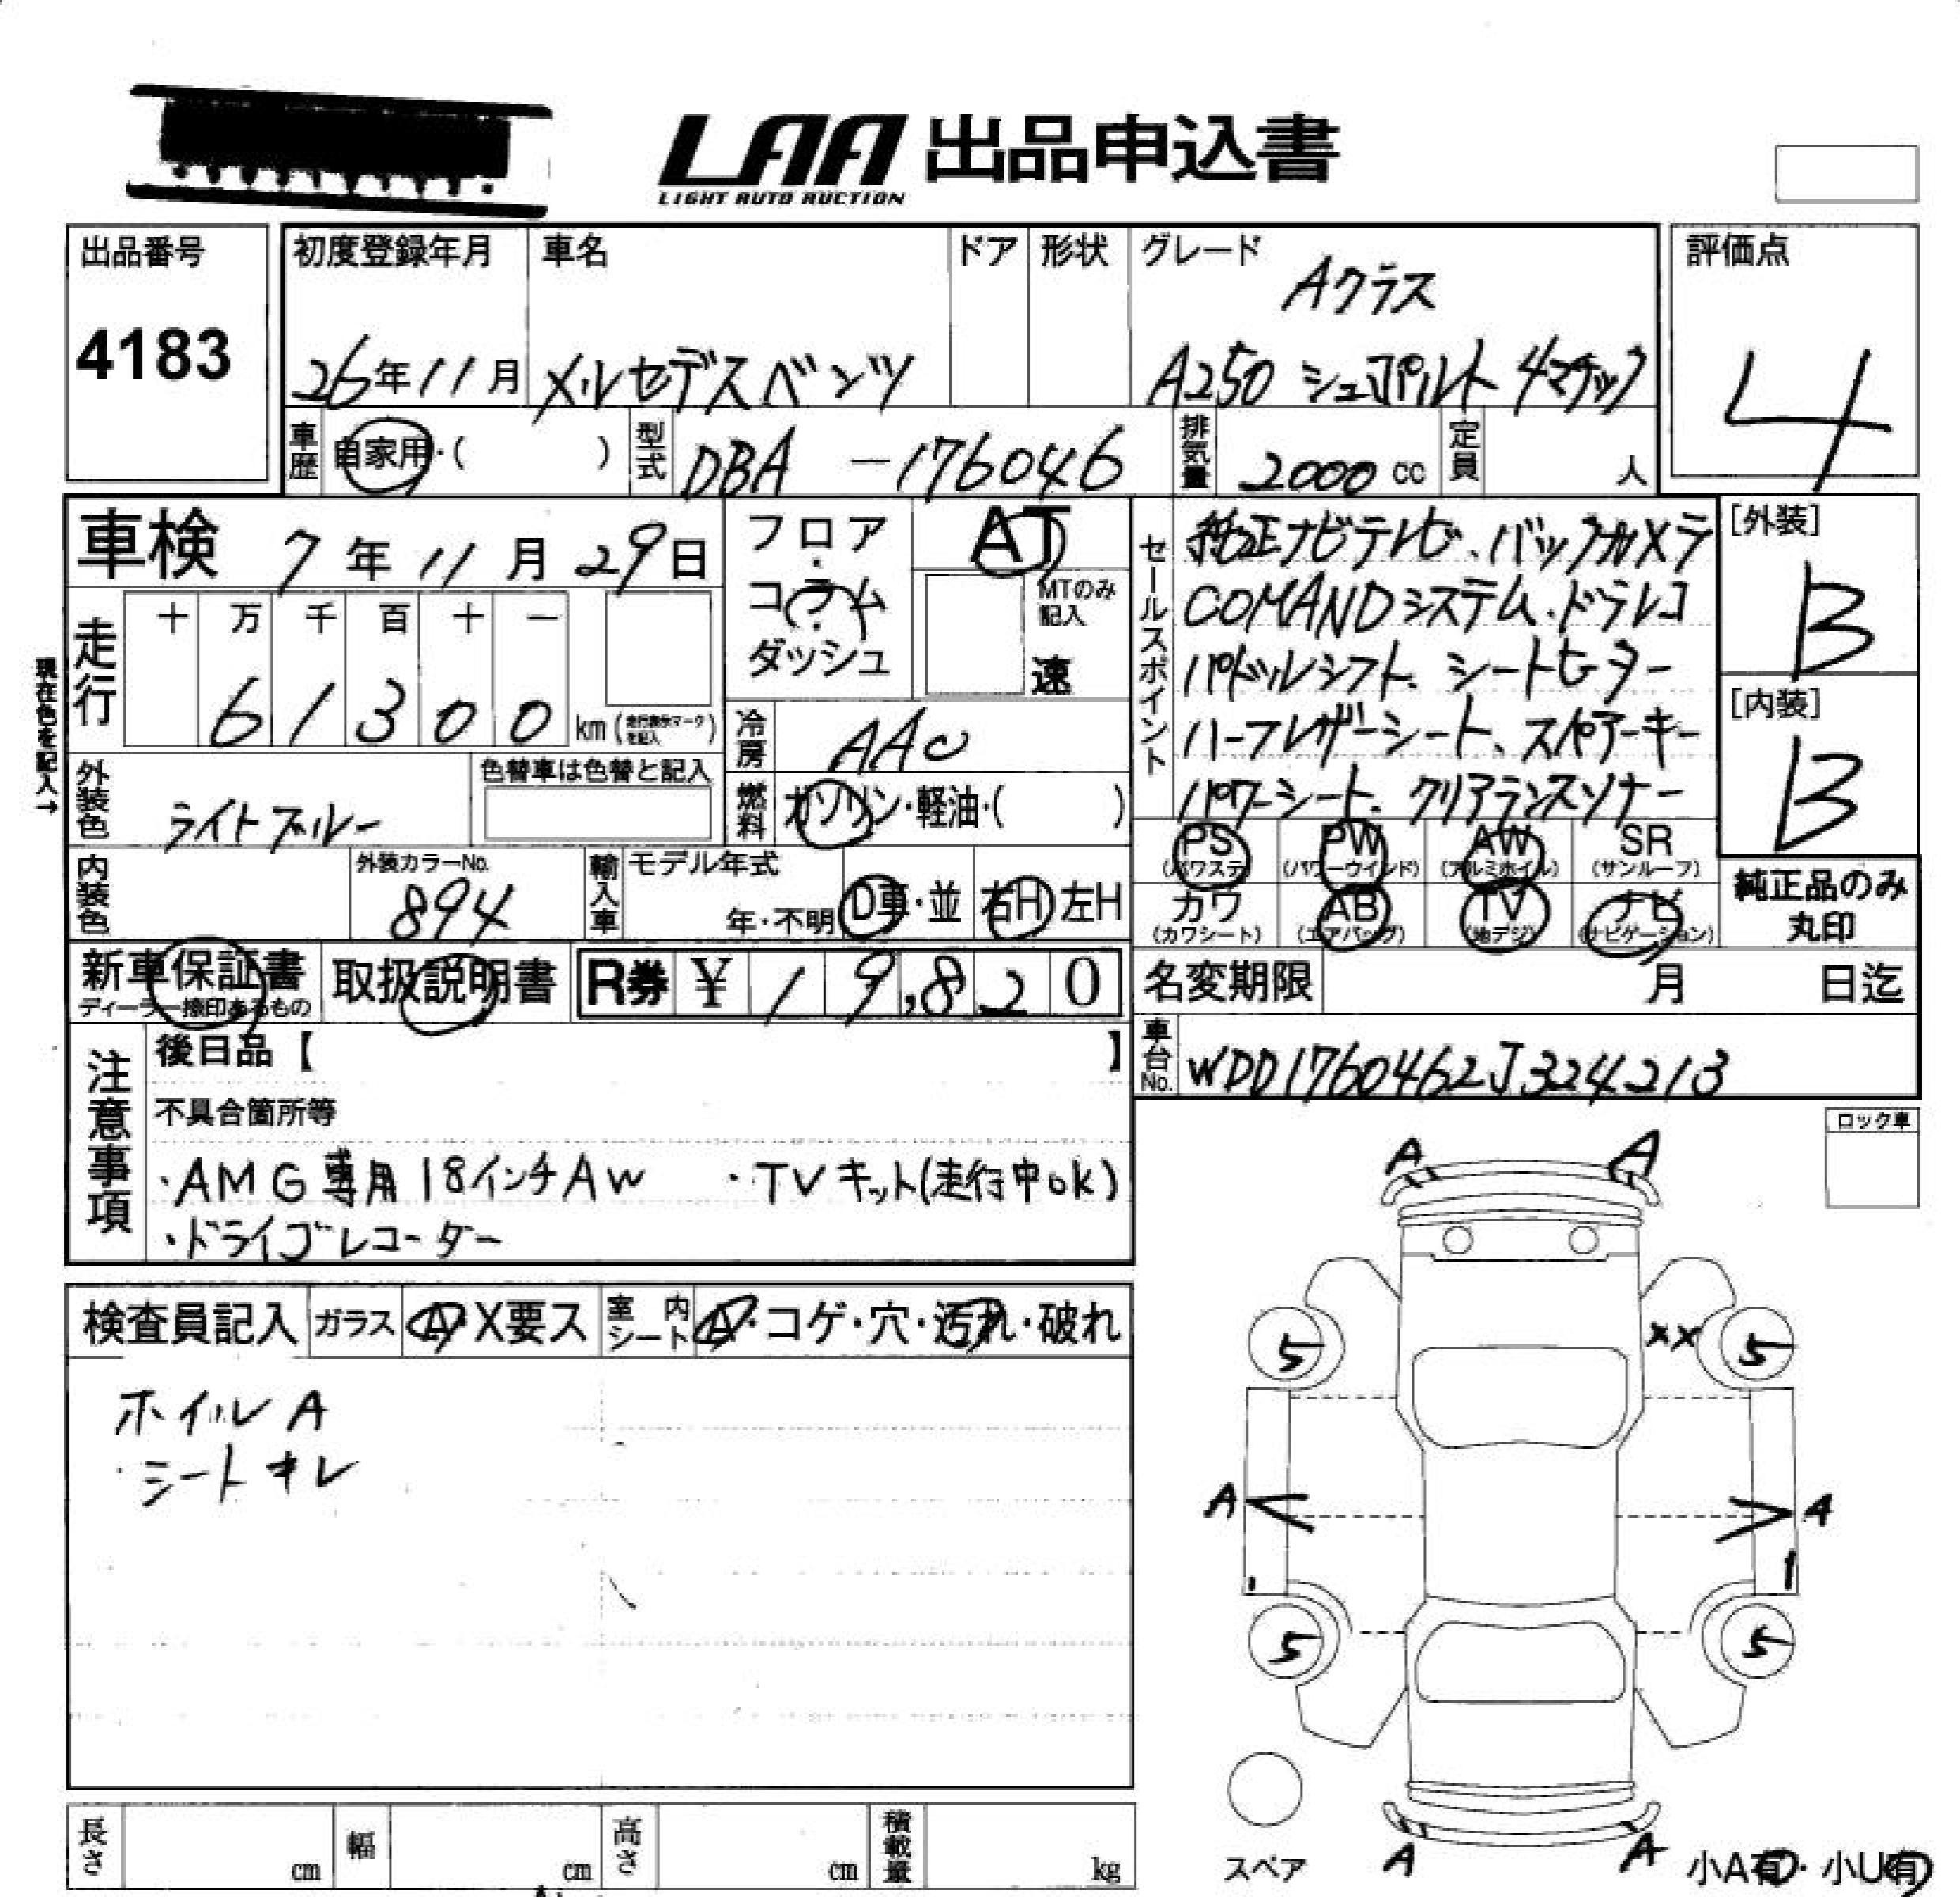 LAA 出品申込書
LIGHT AUTO AUCTION
出品番号
4183
初度登録年月
26年11月
車名
メルセデスベンツ
ドア
形状
グレード
Aクラス
A250 シュポルト 4マチック
評価点
4
車歴
自家用・( )
型式
DBA -176046
排気量
2000 cc
定員
人
車検 7年11月29日
走行
十 万 千 百 十 一
6 1 3 0 0 km (走行表示マークを記入)
現在色を記入→
フロア・コラム・ダッシュ
AT
MTのみ記入
速
冷房
AAC
燃料
ガソリン・軽油・( )
外装色
ライトブルー
色替車は色替と記入
内装色
外装カラーNo.
894
輸入車
モデル年式
年・不明
D車・並
右H 左H
セールスポイント
純正ナビテレビ、バックカメラ
COMANDシステム・ドラレコ
パドルシフト、シートヒーター
ハーフレザーシート、スペアーキー
パワーシート、クリアランスソナー
[外装]
B
[内装]
B
PS (パワステ)
PW (パワーウインド)
AW (アルミホイル)
SR (サンルーフ)
カワ (カワシート)
AB (エアバッグ)
TV (地デジ)
ナビ (ナビゲーション)
純正品のみ
丸印
新車保証書
ディーラー捺印あるもの
取扱説明書
R券 ¥ 1 9,8 2 0
名変期限 月 日迄
車台No.
WDD1760462J324213
注意事項
後日品【 】
不具合箇所等
・AMG専用18インチAW ・TVキット(走行中ok)
・ドライブレコーダー
ロック車
検査員記入
ガラス
A・X要ス
室内シート
A・コゲ・穴・汚れ・破れ
ホイルA
・シートキレ
A A
5 XX 5
A A
5 5
A A
スペア
小A有・小U有
長さ cm
幅 cm
高さ cm
積載量 kg